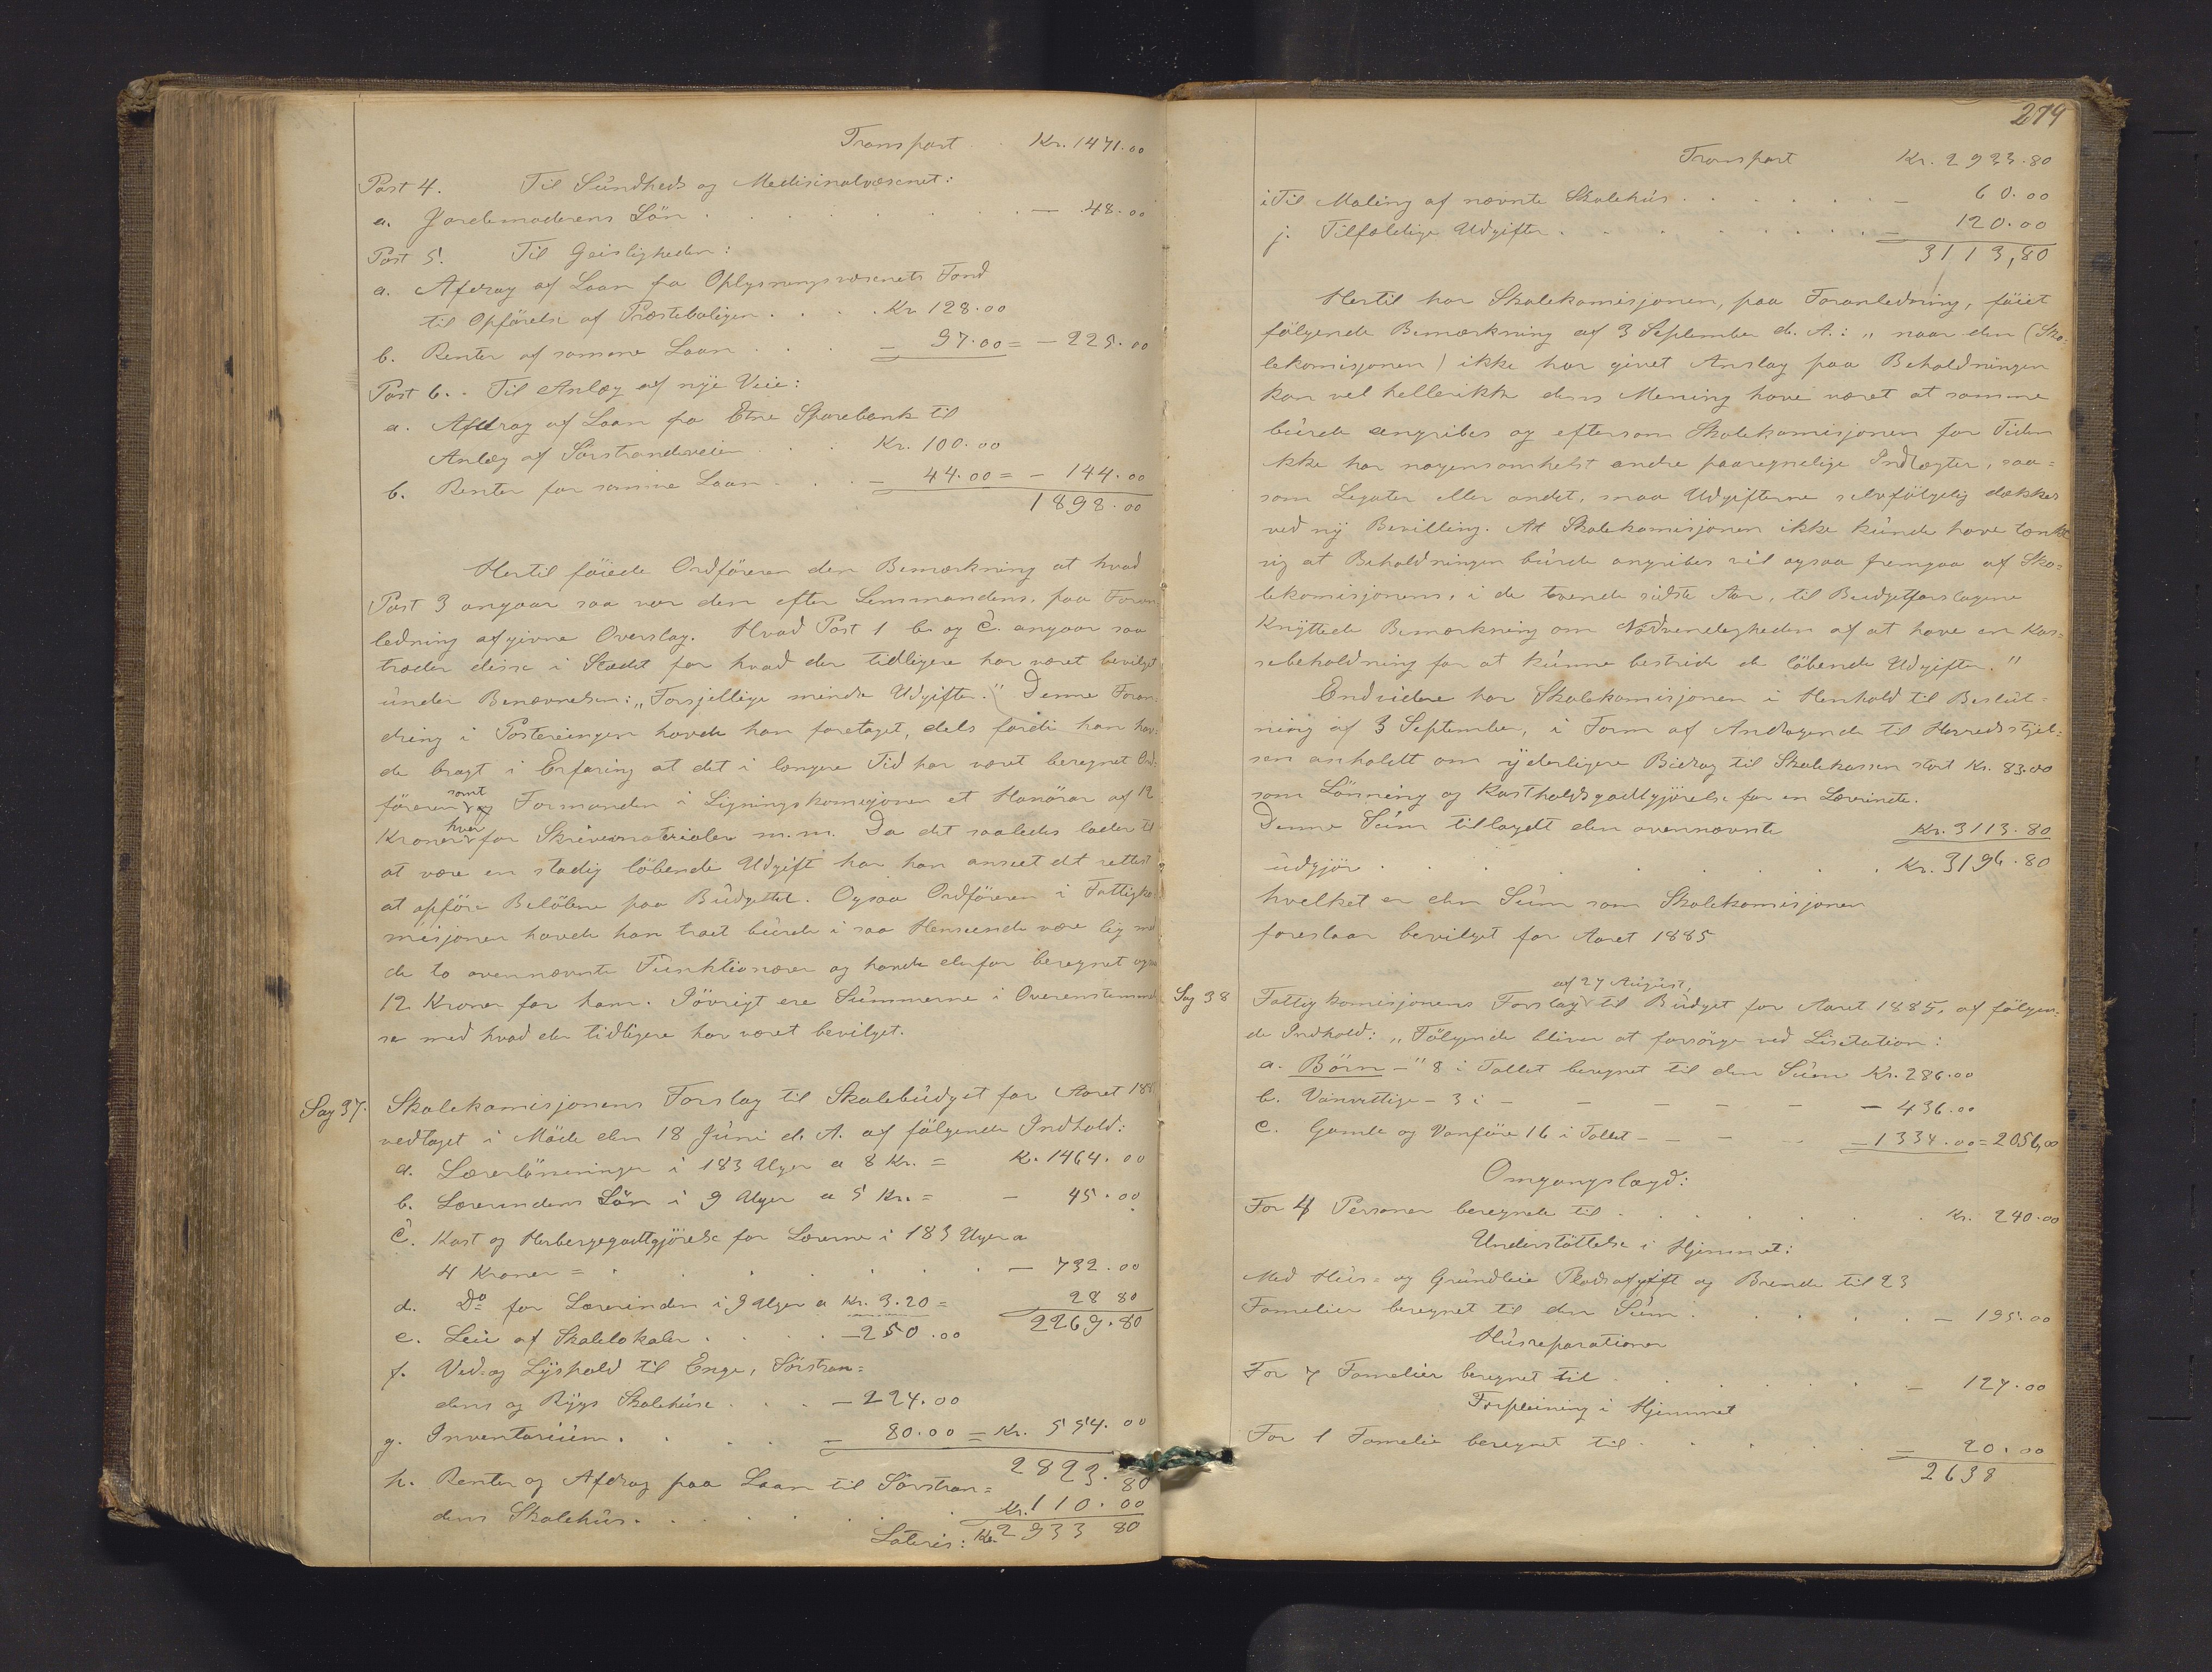 Transport . . Kr. 1471.00
Post 4. Til Sundheds og Medisinalvæsenet:
a. Jordemoderens Lön . . . . . . . — 48.00
Post 5. Til Geisligheden:
a. Afdrag af Laan fra Oplysningsvæsenets Fond
til Opförelse af Præsteboligen . . . . Kr 128.00
b. Renter af samme Laan . . . — 97.00 = — 225.00
Post 6. Til Anlæg af nye Veie:
a. Afdrag af Laan fra Etne Sparebank til
Anlæg af Sörstrandsveien . . . Kr. 100.00
b. Renter for samme Laan . . . — 44.00 = — 144.00
1898.00
Hertil föiede Ordföreren den Bemærkning at hvad
Post 3 angaar saa var den efter Lensmandens, paa Foran
ledning afgivne Overslag. Hvad Post 1 b. og c. angaar saa
træder disse i Stedet for hvad der tidligere har været bevilget
under Benævnelsen: „Forsjellige mindre Udgifter." Denne Foran-
dring i Posteringen havde han foretaget, dels fordi han hav-
de bragt i Erfaring at det i længere Tid har været beregnet Ord-
föreren samt Formanden i Ligningskomisjonen et Honörar af 12
Kroner hver for Skrivematerialer m.m. Da det saaledes lader til
at være en stadig löbende Udgift har han anseet det rettest
at opföre Belöbene paa Budgettet. Ogsaa Ordföreren i Fattigko-
misjonen havde han troet burde i saa Henseende være lig med
de to ovennævnte Funktionærer og havde derfor beregnet ogsaa
12 Kroner for ham. Iövrigt ere Summerne i Overenstemmel
se med hvad der tidligere har været bevilget.
Sag 37. Skolekomisjonens Forslag til Skolebudget for Aaret 188
vedtaget i Möde den 18 Juni d. A. af fölgende Indhold:
a. Lærerlönninger i 183 Uger a 8 Kr. = K. 1464.00
b. Lærerindens Lön i 9 Uger a 5 Kr. = — 45.00
c. Kost og Herbergegodtgjörelse for Lærerne i 183 Uger a
4 Kroner = . . . . . . — 732.00
d. Do for Lærerinden i 9 Uger a Kr. 3.20 = 28 80
2269.80
e. Leie af Skolelokaler . . . . — 250.00
f. Ved- og Lyshold til Enge, Sörstran=
dens og Rygs Skolehuse . . . — 224.00
g. Inventarium . . . . — 80.00 = Kr. 554.00
2823.80
h. Renter og Afdrag paa Laan til Sörstran=
dens Skolehus . . . . . . Kr. 110.00
Lateris: Kr. 2933 80
279
Transport Kr. 2933.80
i Til Maling af nævnte Skolehus . . . . . — 60.00
j. Tilfældige Udgifter . . . . . . . — 120.00
3113,80
Hertil har Skolekomisjonen, paa Foranledning, föiet
fölgende Bemærkning af 3 September d. A.: „naar den (Sko-
lekomisjonen) ikke har givet Anslag paa Beholdningen
kan vel hellerikke dens Mening have været at samme
burde angribes og eftersom Skolekomisjonen for Tiden
ikke har nogensomhelst andre paaregnelige Indtægter, saa=
som Legater eller andet, maa Udgifterne selvfölgelig dækkes
ved ny Bevilling. At Skolekomisjonen ikke kunde have tænkt
sig at Beholdningen burde angribes vil ogsaa fremgaa af Sko=
lekomisjonens, i de tvende sidste Aar, til Budgetforslagene
knyttede Bemærkning om Nödvendigheden af at have en Kas=
sebeholdning for at kunne bestride de löbende Udgifter."
Endvidere har Skolekomisjonen i Henhold til Beslut=
ning af 3 September, i Form af Andragende til Herredsstyel=
sen anholdt om yderligere Bidrag til Skolekassen stort Kr. 83.00
som Lönning og Kostholdsgodtgjörelse for en Lærerinde.
Denne Sum tillagdt den ovennævnte Kr. 3113.80
udgjör . . . . . . . Kr. 3196.80
hvelket er den Sum som Skolekomisjonen
foreslaar bevilget for Aaret 1885
Sag 38 Fattigkomisjonens Forslag af 27 August, til Budget for Aaret 1885, af fölgen=
de Indhold: „Fölgende bliver at forsörge ved Lisitation:
a. Börn — " 8 i Tallet beregnet til den Sum Kr. 286.00
b. Vanvittige — 3 i — — — — — — 436.00
c. Gamle og Vanföre 16 i Tallet — — — — 1334.00 = 2056,00
Omgangslægd:
For 4 Personer beregnet til . . . . . . Kr. 240.00
Understöttelse i Hjemmet:
Med Hus= og Grundleie Pladsafgift og Brænde til 23
Famelier beregnet til den Sum . . . . . — 195.00
Husreparationer
For 7 Famelier beregnet til . . . . . — 127.00
Forpleining i Hjemmet
For 1 Famelie beregnet til . . . . — 20.00
2638